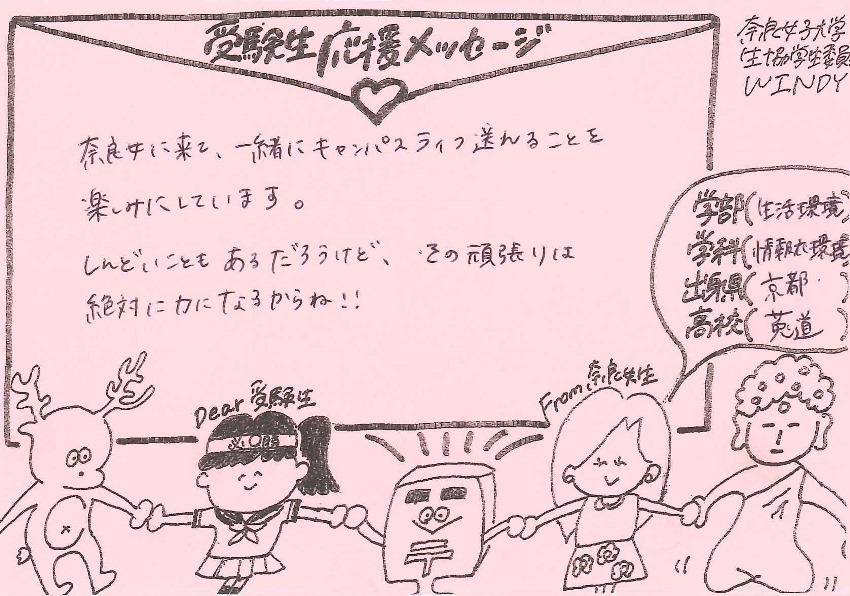 受験生応援メッセージ
奈良女子大学
生協学生委員
WINDY
奈良女に来て、一緒にキャンパスライフ送れることを
楽しみにしています。
しんどいこともあるだろうけど、その頑張りは
絶対に力になるからね!!
学部(生活環境)
学科(情報衣環境
出身県(京都)
高校(莵道)
Dear 受験生
From 奈良女生
必勝
〒